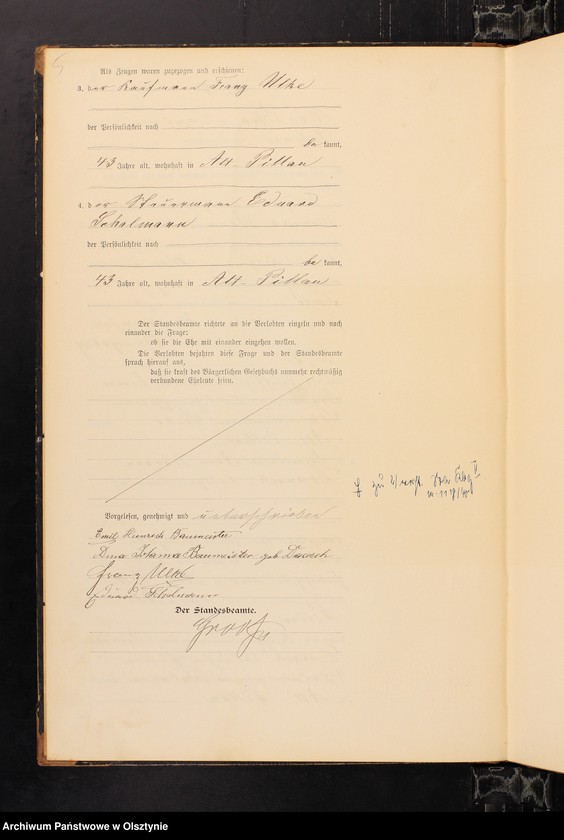 Als Zeugen waren zugezogen und erschienen:
3. der Kaufmann Franz Utke
der Persönlichkeit nach
be kannt,
43 Jahre alt, wohnhaft in Alt-Pillau
4. der Steuermann Eduard
Schalmann
der Persönlichkeit nach
be kannt,
43 Jahre alt, wohnhaft in Alt-Pillau
Der Standesbeamte richtete an die Verlobten einzeln und nach
einander die Frage:
ob sie die Ehe mit einander eingehen wollen.
Die Verlobten bejahten diese Frage und der Standesbeamte
sprach hierauf aus,
daß sie kraft des Bürgerlichen Gesetzbuchs nunmehr rechtmäßig
verbundene Eheleute seien.
zu
Vorgelesen, genehmigt und unterschrieben
Emil Heinrich Baumeister
Johanna Baumeister geb
Franz Utke
Eduard
Der Standesbeamte.
Archiwum Państwowe w Olsztynie